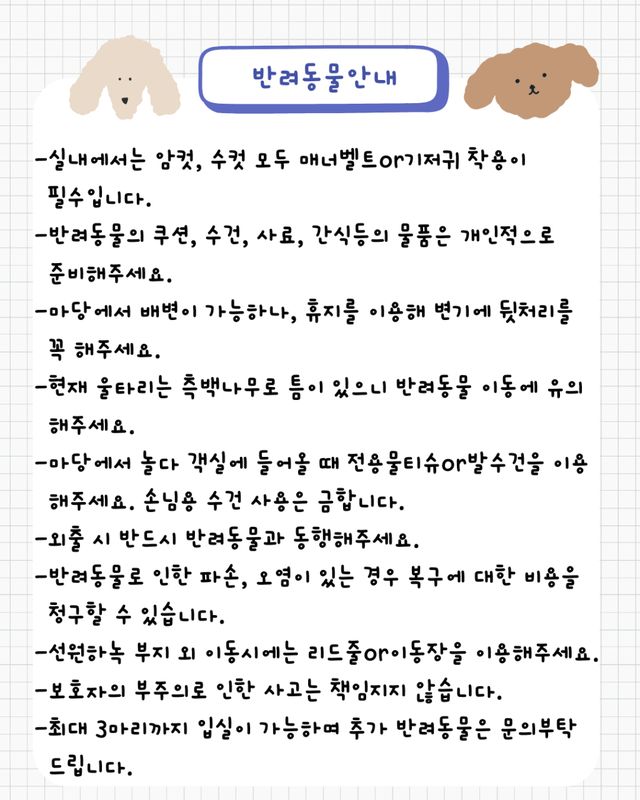 반려동물안내
-실내에서는 암컷, 수컷 모두 매너벨트or기저귀 착용이
필수입니다.
-반려동물의 쿠션, 수건, 사료, 간식등의 물품은 개인적으로
준비해주세요.
-마당에서 배변이 가능하나, 휴지를 이용해 변기에 뒷처리를
꼭 해주세요.
-현재 울타리는 측백나무로 틈이 있으니 반려동물 이동에 유의
해주세요.
-마당에서 놀다 객실에 들어올 때 전용물티슈or발수건을 이용
해주세요. 손님용 수건 사용은 금합니다.
-외출 시 반드시 반려동물과 동행해주세요.
-반려동물로 인한 파손, 오염이 있는 경우 복구에 대한 비용을
청구할 수 있습니다.
-선원하녹 부지 외 이동시에는 리드줄or이동장을 이용해주세요.
-보호자의 부주의로 인한 사고는 책임지지 않습니다.
-최대 3마리까지 입실이 가능하며 추가 반려동물은 문의부탁
드립니다.